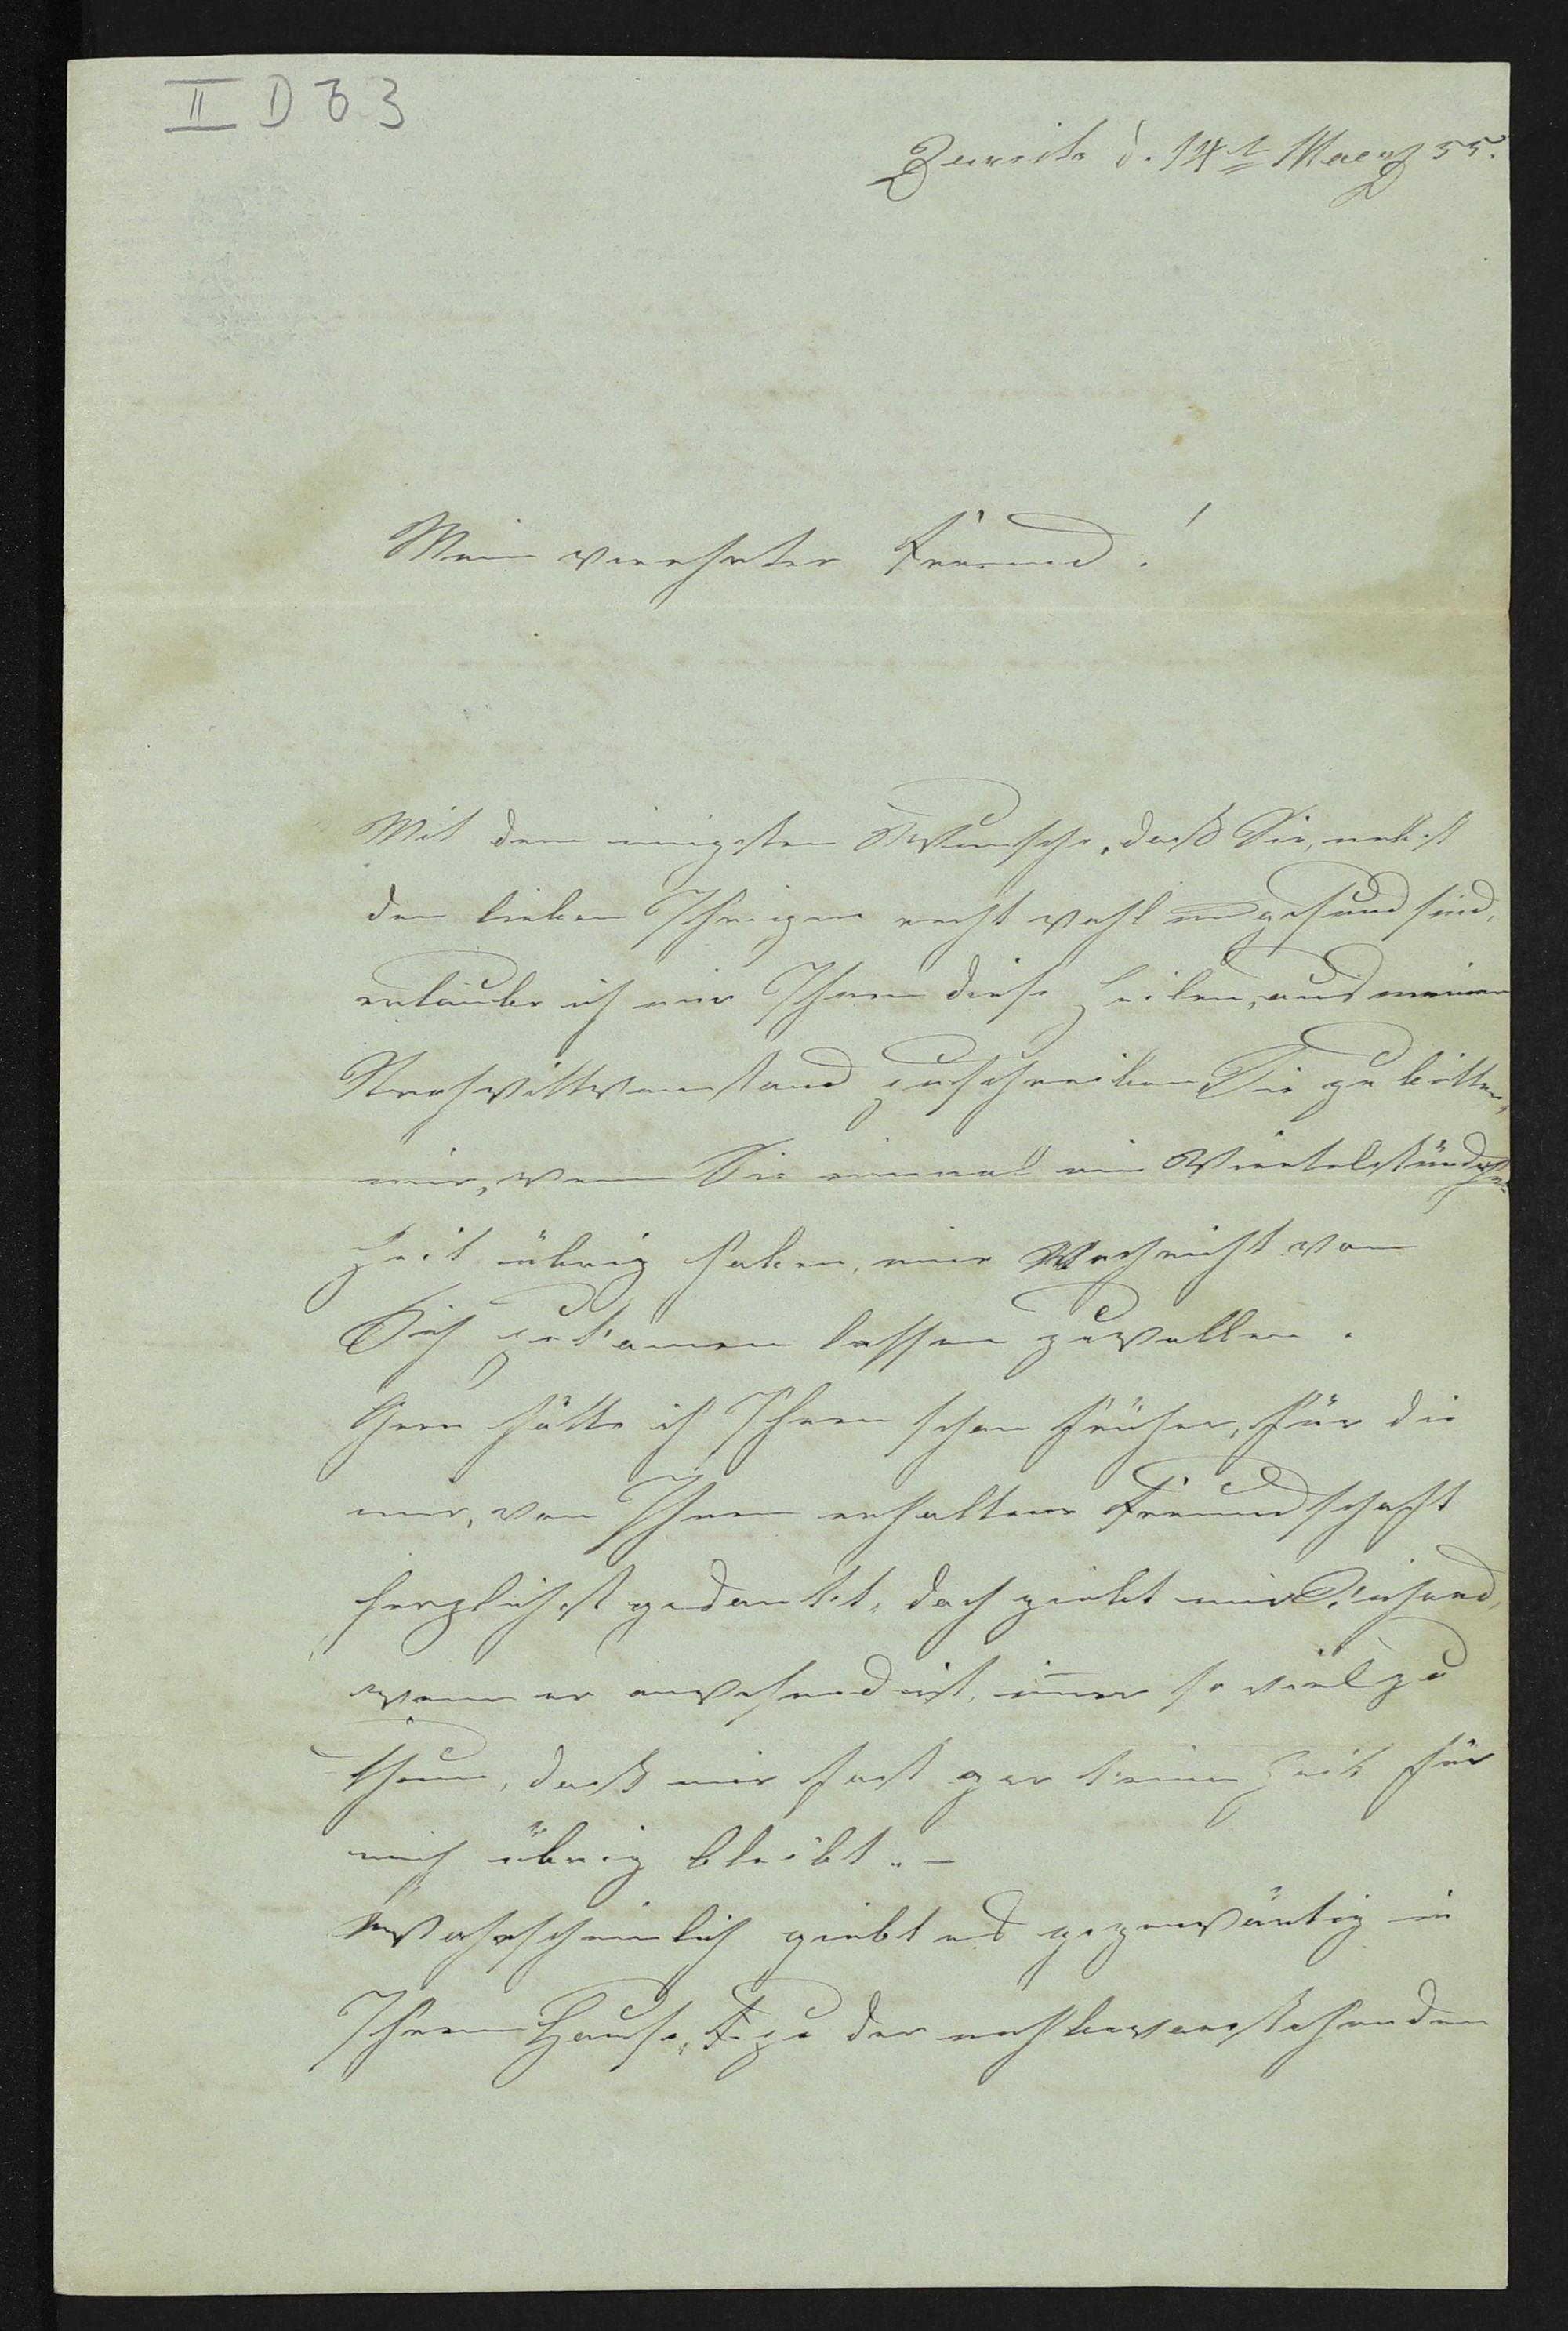 II D b 3
Zuerich d. 14t Maerz 55.
Mein verehrter Freund!
Mit dem innigsten Wunsche, daß Sie, nebst
den lieben Ihrigen recht wohl und gesund sind,
erlaube ich mir Ihnen diese Zeilen, aus meinem
Strohwittwenstand zuschreiben Sie zu bitten,
mir, wenn Sie einmal ein Viertelstündchen
Zeit übrig haben, mir Nachricht von
Sich zukomen lassen zuwollen.
Gern hätte ich Ihnen schon früher, für die
mir, von Ihnen erhaltene Freundschaft
herzlichst gedankt, doch giebt mir Richard,
wenn er anwesend ist, imer so viel zu
thun, daß mir fast gar keine Zeit für
mich übrig bleibt. –
Wahrscheinlich giebt es gegenwärtig in
Ihrem Hause, zu der nahbevorstehenden